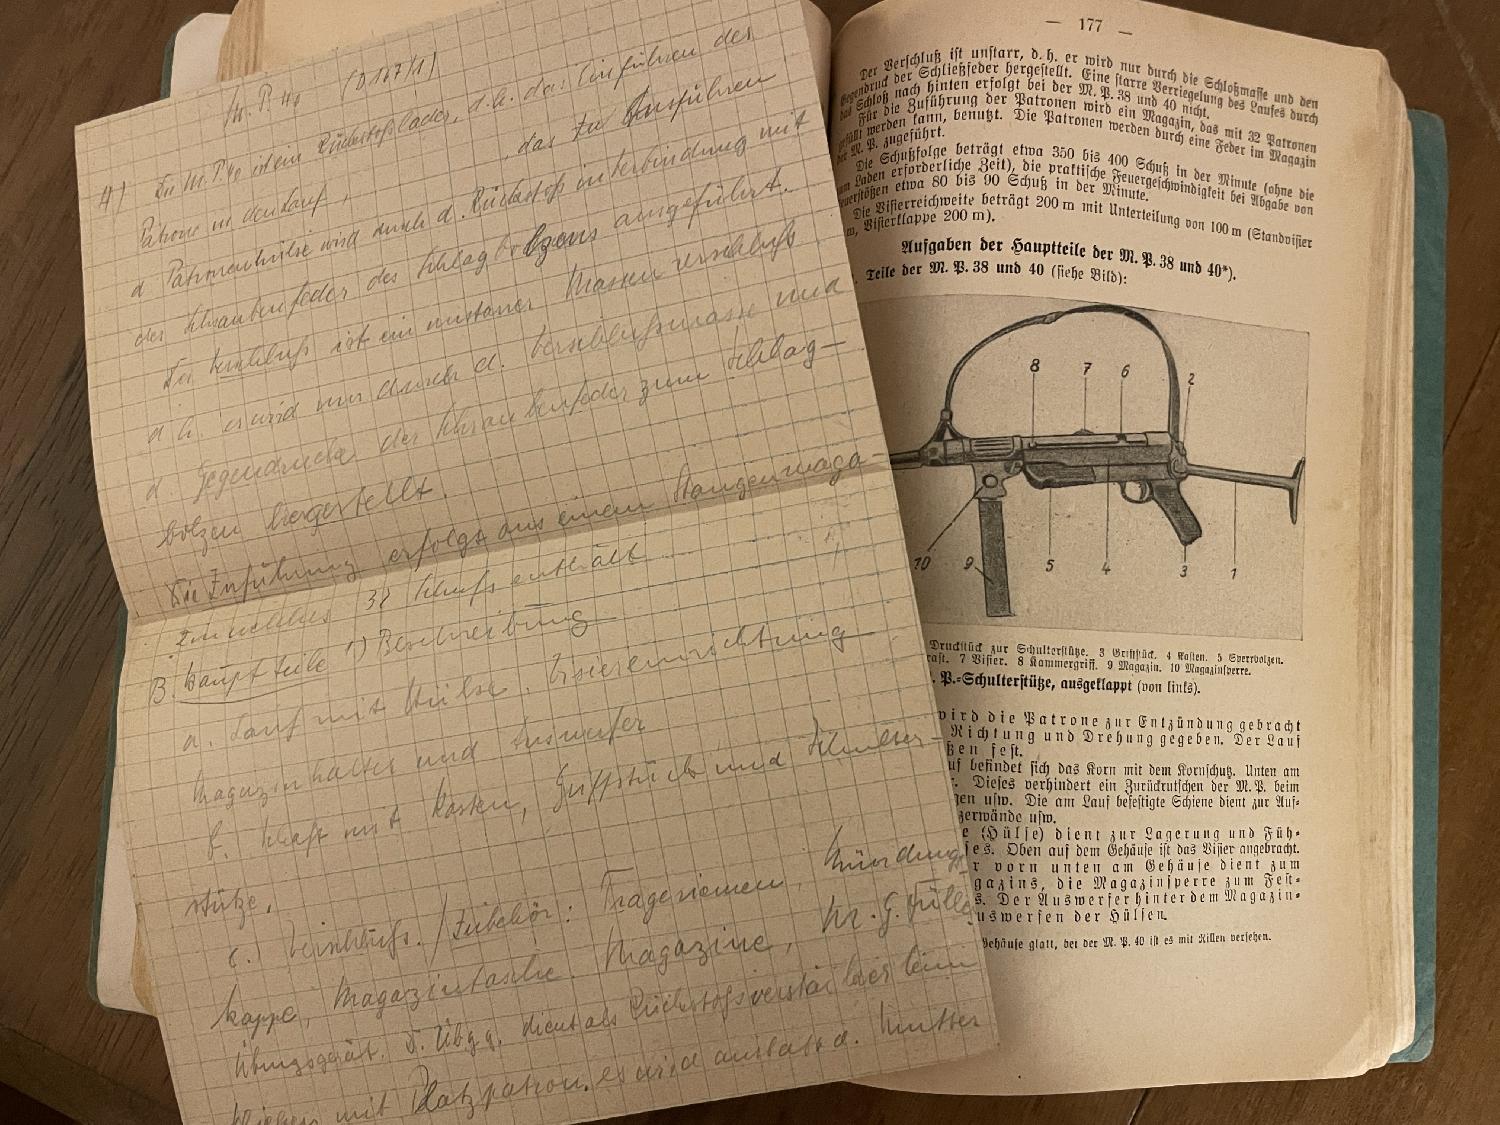 M.P. 40 (D 167/1)
A) Die M.P. 40 ist ein Rückstoßlader, d.h. das Einführen der
Patrone in den Lauf, , das zu Ausführen
d Patronenhülse wird durch d. Rückstoß in Verbindung mit
der Schraubenfeder des Schlagbolzens ausgeführt.
Der Verschluß ist ein unstarrer Massenverschluß
d.h. er wird nur durch d. Verschlußmasse und
d. Gegendrucke der Schraubenfeder zum Schlag-
bolzen hergestellt.
Die Zuführung erfolgt aus einem Stangenmaga-
zin welches 32 Schuß enthält
B. Hauptteile 1) Beschreibung
a. Lauf mit Hülse. Visiereinrichtung
Magazinhalter und Auswerfer
b. Schaft mit Kasten, Griffstück und Schulter-
stütze.
c.) Verschluß. / Zubehör: Trageriemen, Mündungs-
kappe, Magazintasche. Magazine, M.G. Füller
Übungsgerät. D. Übg.g. dient als Rückstoßverstärker beim
Schießen mit Platzpatron. es wird anstatt d. Mutter
— 177 —
Der Verschluß ist unstarr, d. h. er wird nur durch die Schloßmasse und den
Gegendruck der Schließfeder hergestellt. Eine starre Verriegelung des Laufes durch
das Schloß nach hinten erfolgt bei der M. P. 38 und 40 nicht.
Für die Zuführung der Patronen wird ein Magazin, das mit 32 Patronen
gefüllt werden kann, benutzt. Die Patronen werden durch eine Feder im Magazin
der M. P. zugeführt.
Die Schußfolge beträgt etwa 350 bis 400 Schuß in der Minute (ohne die
zum Laden erforderliche Zeit), die praktische Feuergeschwindigkeit bei Abgabe von
Feuerstößen etwa 80 bis 90 Schuß in der Minute.
Die Visierreichweite beträgt 200 m mit Unterteilung von 100 m (Standvisier
m, Visierklappe 200 m).
Aufgaben der Hauptteile der M. P. 38 und 40*).
. Teile der M. P. 38 und 40 (siehe Bild):
8 7 6 2
10 9 5 4 3 1
Druckstück zur Schulterstütze. 3 Griffstück. 4 Kasten. 5 Sperrbolzen.
rast. 7 Visier. 8 Kammergriff. 9 Magazin. 10 Magazinsperre.
. P.-Schulterstütze, ausgeklappt (von links).
wird die Patrone zur Entzündung gebracht
Richtung und Drehung gegeben. Der Lauf
ßen fest.
uf befindet sich das Korn mit dem Kornschutz. Unten am
. Dieses verhindert ein Zurückrutschen der M. P. beim
gen usw. Die am Lauf befestigte Schiene dient zur Auf-
zerwände usw.
e (Hülse) dient zur Lagerung und Füh-
ses. Oben auf dem Gehäuse ist das Visier angebracht.
r vorn unten am Gehäuse dient zum
gazins, die Magazinsperre zum Fest-
s. Der Auswerfer hinter dem Magazin-
uswerfen der Hülsen.
Gehäuse glatt, bei der M. P. 40 ist es mit Rillen versehen.